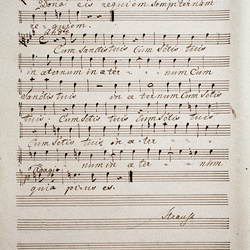 Dona eis requiem sempiternam
requiem.
Cum Sanctis tuis Cum Sctis tuis
in aeternum in aeter- num Cum
Sanctis tuis in aeternum Cum Sctis
tuis Cum Sctis tuis Cum Sctis tuis
Cum Sctis tuis in aeter-
Adagio num in aeter- num
quia pius es.